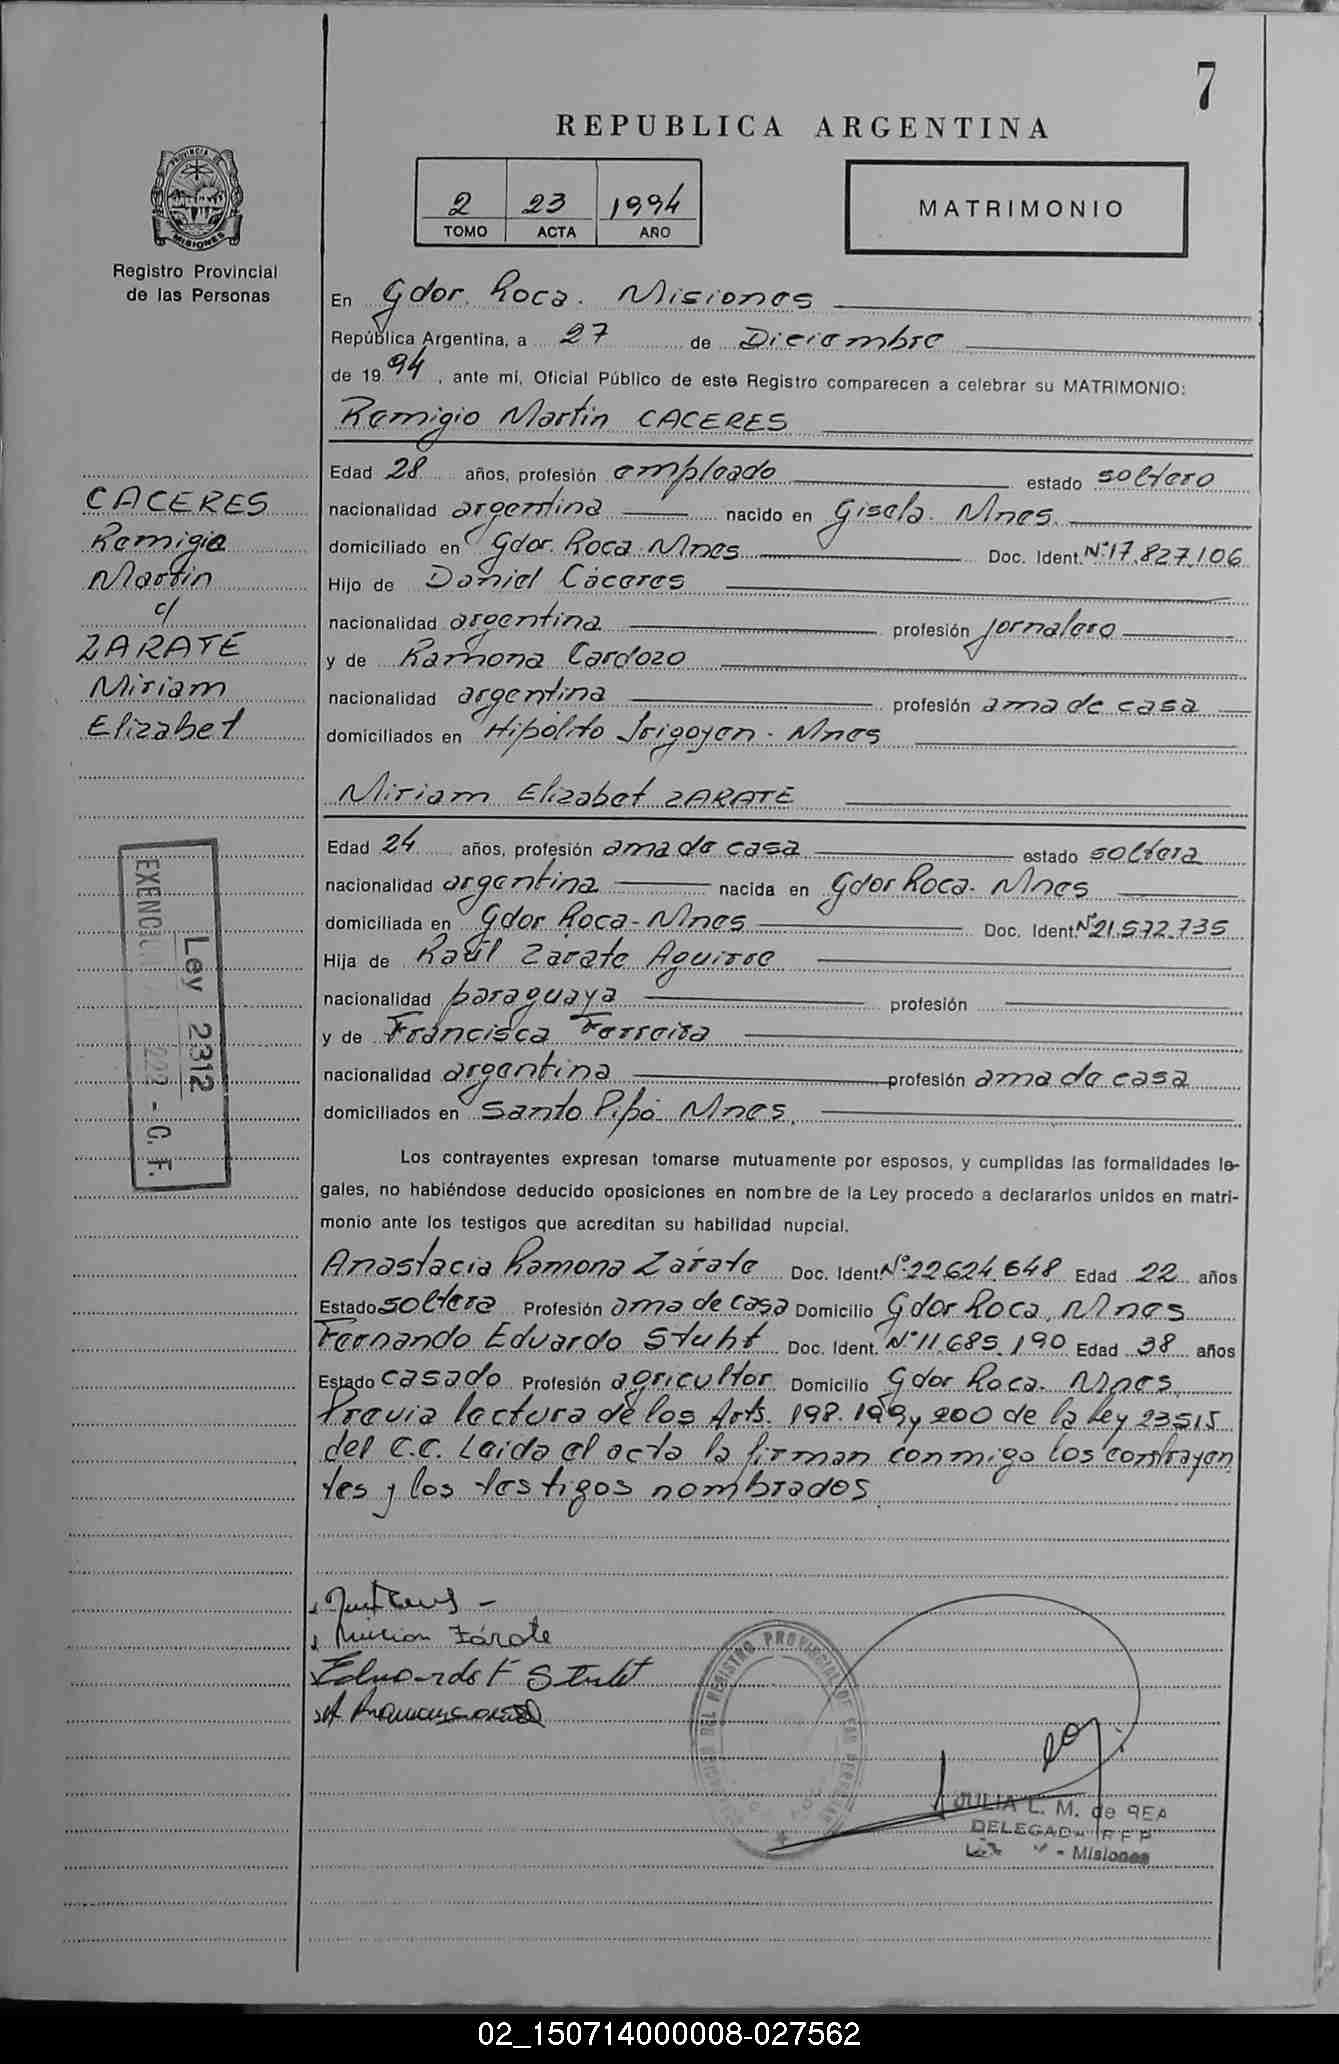 7
REPUBLICA ARGENTINA
PROVINCIA DE
MISIONES
Registro Provincial
de las Personas
2 23 1994
TOMO ACTA AÑO
MATRIMONIO
En Gdor. Roca. Misiones
República Argentina, a 27 de Diciembre
de 19 94, ante mí, Oficial Público de este Registro comparecen a celebrar su MATRIMONIO:
Remigio Martin CACERES
Edad 28 años, profesión empleado estado soltero
nacionalidad argentina nacido en Gisela. Mnes.
domiciliado en Gdor. Roca Mnes Doc. Ident. Nº 17.827.106
Hijo de Daniel Cáceres
nacionalidad argentina profesión jornalero
y de Ramona Cardozo
nacionalidad argentina profesión ama de casa
domiciliados en Hipólito Irigoyen - Mnes
CACERES
Remigio
Martin
c/
ZARATE
Miriam
Elizabet
Miriam Elizabet ZARATE
Edad 24 años, profesión ama de casa estado soltera
nacionalidad argentina nacida en Gdor Roca. Mnes
domiciliada en Gdor Roca - Mnes Doc. Ident. Nº 21.572.735
Hija de Raúl Zárate Aguirre
nacionalidad paraguaya profesión
y de Francisca Ferreira
nacionalidad argentina profesión ama de casa
domiciliados en Santo Pipó Mnes.
Ley 2312
C. F.
Los contrayentes expresan tomarse mutuamente por esposos, y cumplidas las formalidades le-
gales, no habiéndose deducido oposiciones en nombre de la Ley procedo a declararlos unidos en matri-
monio ante los testigos que acreditan su habilidad nupcial.
Anastacia Ramona Zárate Doc. Ident. Nº 22.624.648 Edad 22 años
Estado soltera Profesión ama de casa Domicilio Gdor Roca, Mnes
Fernando Eduardo Stuht Doc. Ident. Nº 11.685.190 Edad 38 años
Estado casado Profesión agricultor Domicilio Gdor Roca. Mnes.
Previa lectura de los Arts. 198. 199 y 200 de la Ley 23515
del C.C. Leída el acta la firman conmigo los contrayen
tes y los testigos nombrados.
Miriam Zárate
Eduardo F Stuht
DEL REGISTRO PROVINCIAL DE LAS PERSONAS
JULIA L. M. de REA
DELEGADA R P P
- Misiones
02_150714000008-027562